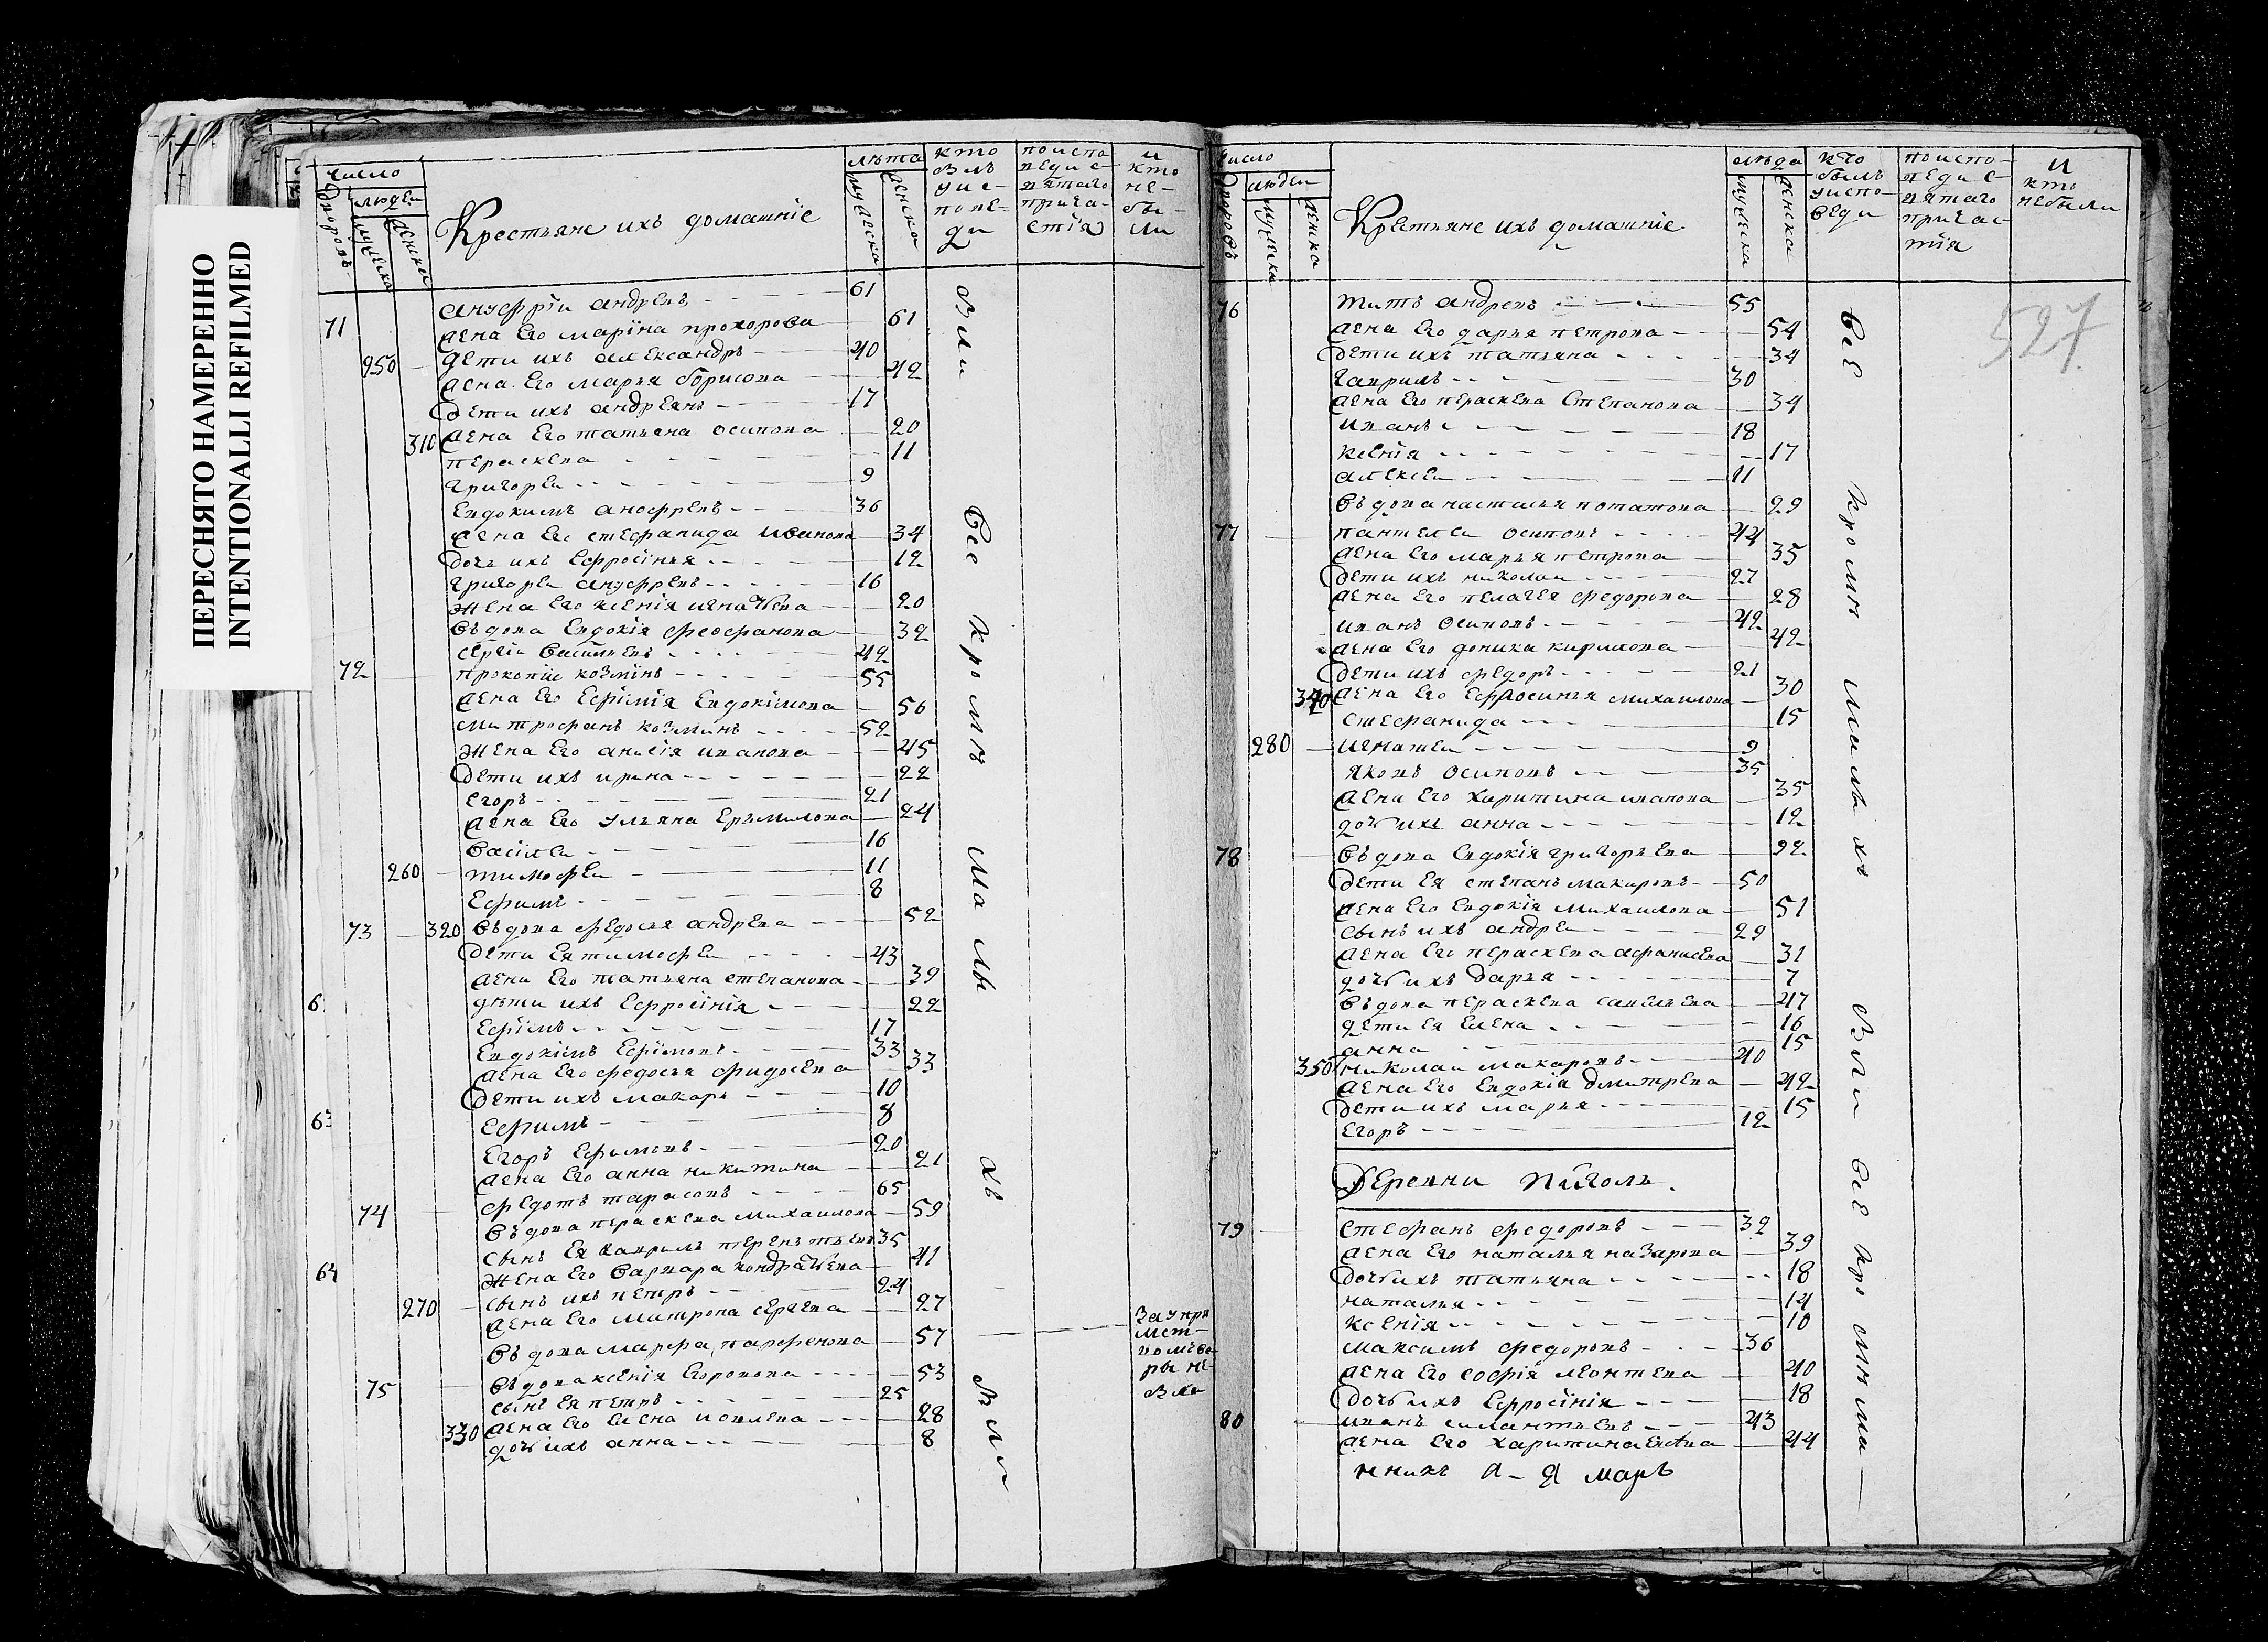 ПЕРЕСНЯТО НАМЕРЕННО
INTENTIONALLI REFILMED
число
людей
Крестьяне ихъ домашніе
лѣта
кто
были
уис-
пове-
ди
поиспо
ведис-
вятаго
прича-
стія
и
кто
не-
бы-
ли
71
ануфріи андревъ 61
жена его маріна прохорова 61
250 дети ихъ александръ 40
жена его марья борисова 42
дети ихъ андреянъ 17
310 жена его татьяна осипова 20
пераскева 11
григореи 9
евдокимъ анофревъ 36
жена его стефанида иванова 34
дочь ихъ ефросінья 12
григореи ануфревъ 16
жена его ксенія игнатьева 20
въдова евдокія феофанова 32
сергіи василиевъ 42
72 прокопіи козминъ 55
жена его ефімія евдокімова 56
митрофанъ козминъ 52
жена его анисія иванова 45
дети ихъ ирина 22
егоръ 21
жена его ульяна еръмилова 24
василеи 16
260 тимофеи 11
ефимъ 8
73 320 въдова федосья андрева 52
дети ея тимофеи 43
жена его татьяна степанова 39
дѣти ихъ ефросінія 22
ефімъ 17
евдокімъ ефімовъ 33
жена его федосья фидосева 33
дети ихъ макаръ 10
ефимъ 8
егоръ ефимовъ 20
жена его анна никитина 21
74 федотъ тарасовъ 65
въдова перасκева михаилова 59
сынъ ея гаврилъ терентьевъ 35
жена его варвара кондратьева 41
сынъ ихъ петръ 24
270 жена его матрона сергева 27
въдова марфа парфенова 57
75 въдова ксенія егоровова 53
сынъ ея петръ 25
330 жена его елена иовлева 28
дочь ихъ анна 8
были все кромѣ малыхъ были
6
63
64
число
людей
Крестьяне ихъ домашніе
кто
былъ
уиспо-
веди
поиспо-
ведис-
вятаго
причас-
тія
и
кто
небыли
527
76 титъ андревъ 55
жена его дарья петрова 54
дети ихъ татьяна 34
гаврилъ 30
жена его перасκева степанова 34
иванъ 18
ксенія 17
алексеи 11
въдова настасья потапова 29
77 пантелеи осиповъ 44
жена его марья петрова 35
дети ихъ николаи 27
жена его пелагея федорова 28
иванъ осиповъ 42
жена его доника кирилова 42
дети ихъ федоръ 21
340 жена его ефросинья михаилова 30
стефанида 15
280 игнатеи 9
яковъ осиповъ 35
жена его харитина иванова 35
дочь ихъ анна 12
78 въдова евдокія григорьева 92
дети ея степанъ макаровъ 50
жена его евдокія михаилова 51
сынъ ихъ андреи 29
жена его перасκева афанасева 31
дочь ихъ дарья 7
въдова перасκева савельева 47
дети ея елена 16
анна 15
350 николаи макаровъ 40
жена его евдокія дмитрева 42
дети ихъ марья 15
егоръ 12
79 стефанъ федоровъ 32
жена его наталья назарова 39
дочь ихъ татьяна 18
наталья 14
ксенія 10
максимъ федоровъ 36
жена его софія леонтева 40
дочь ихъ ефросінія 18
80 иванъ силантьевъ 43
жена его харитина 44
все кроми малыхъ были все кроми ма-